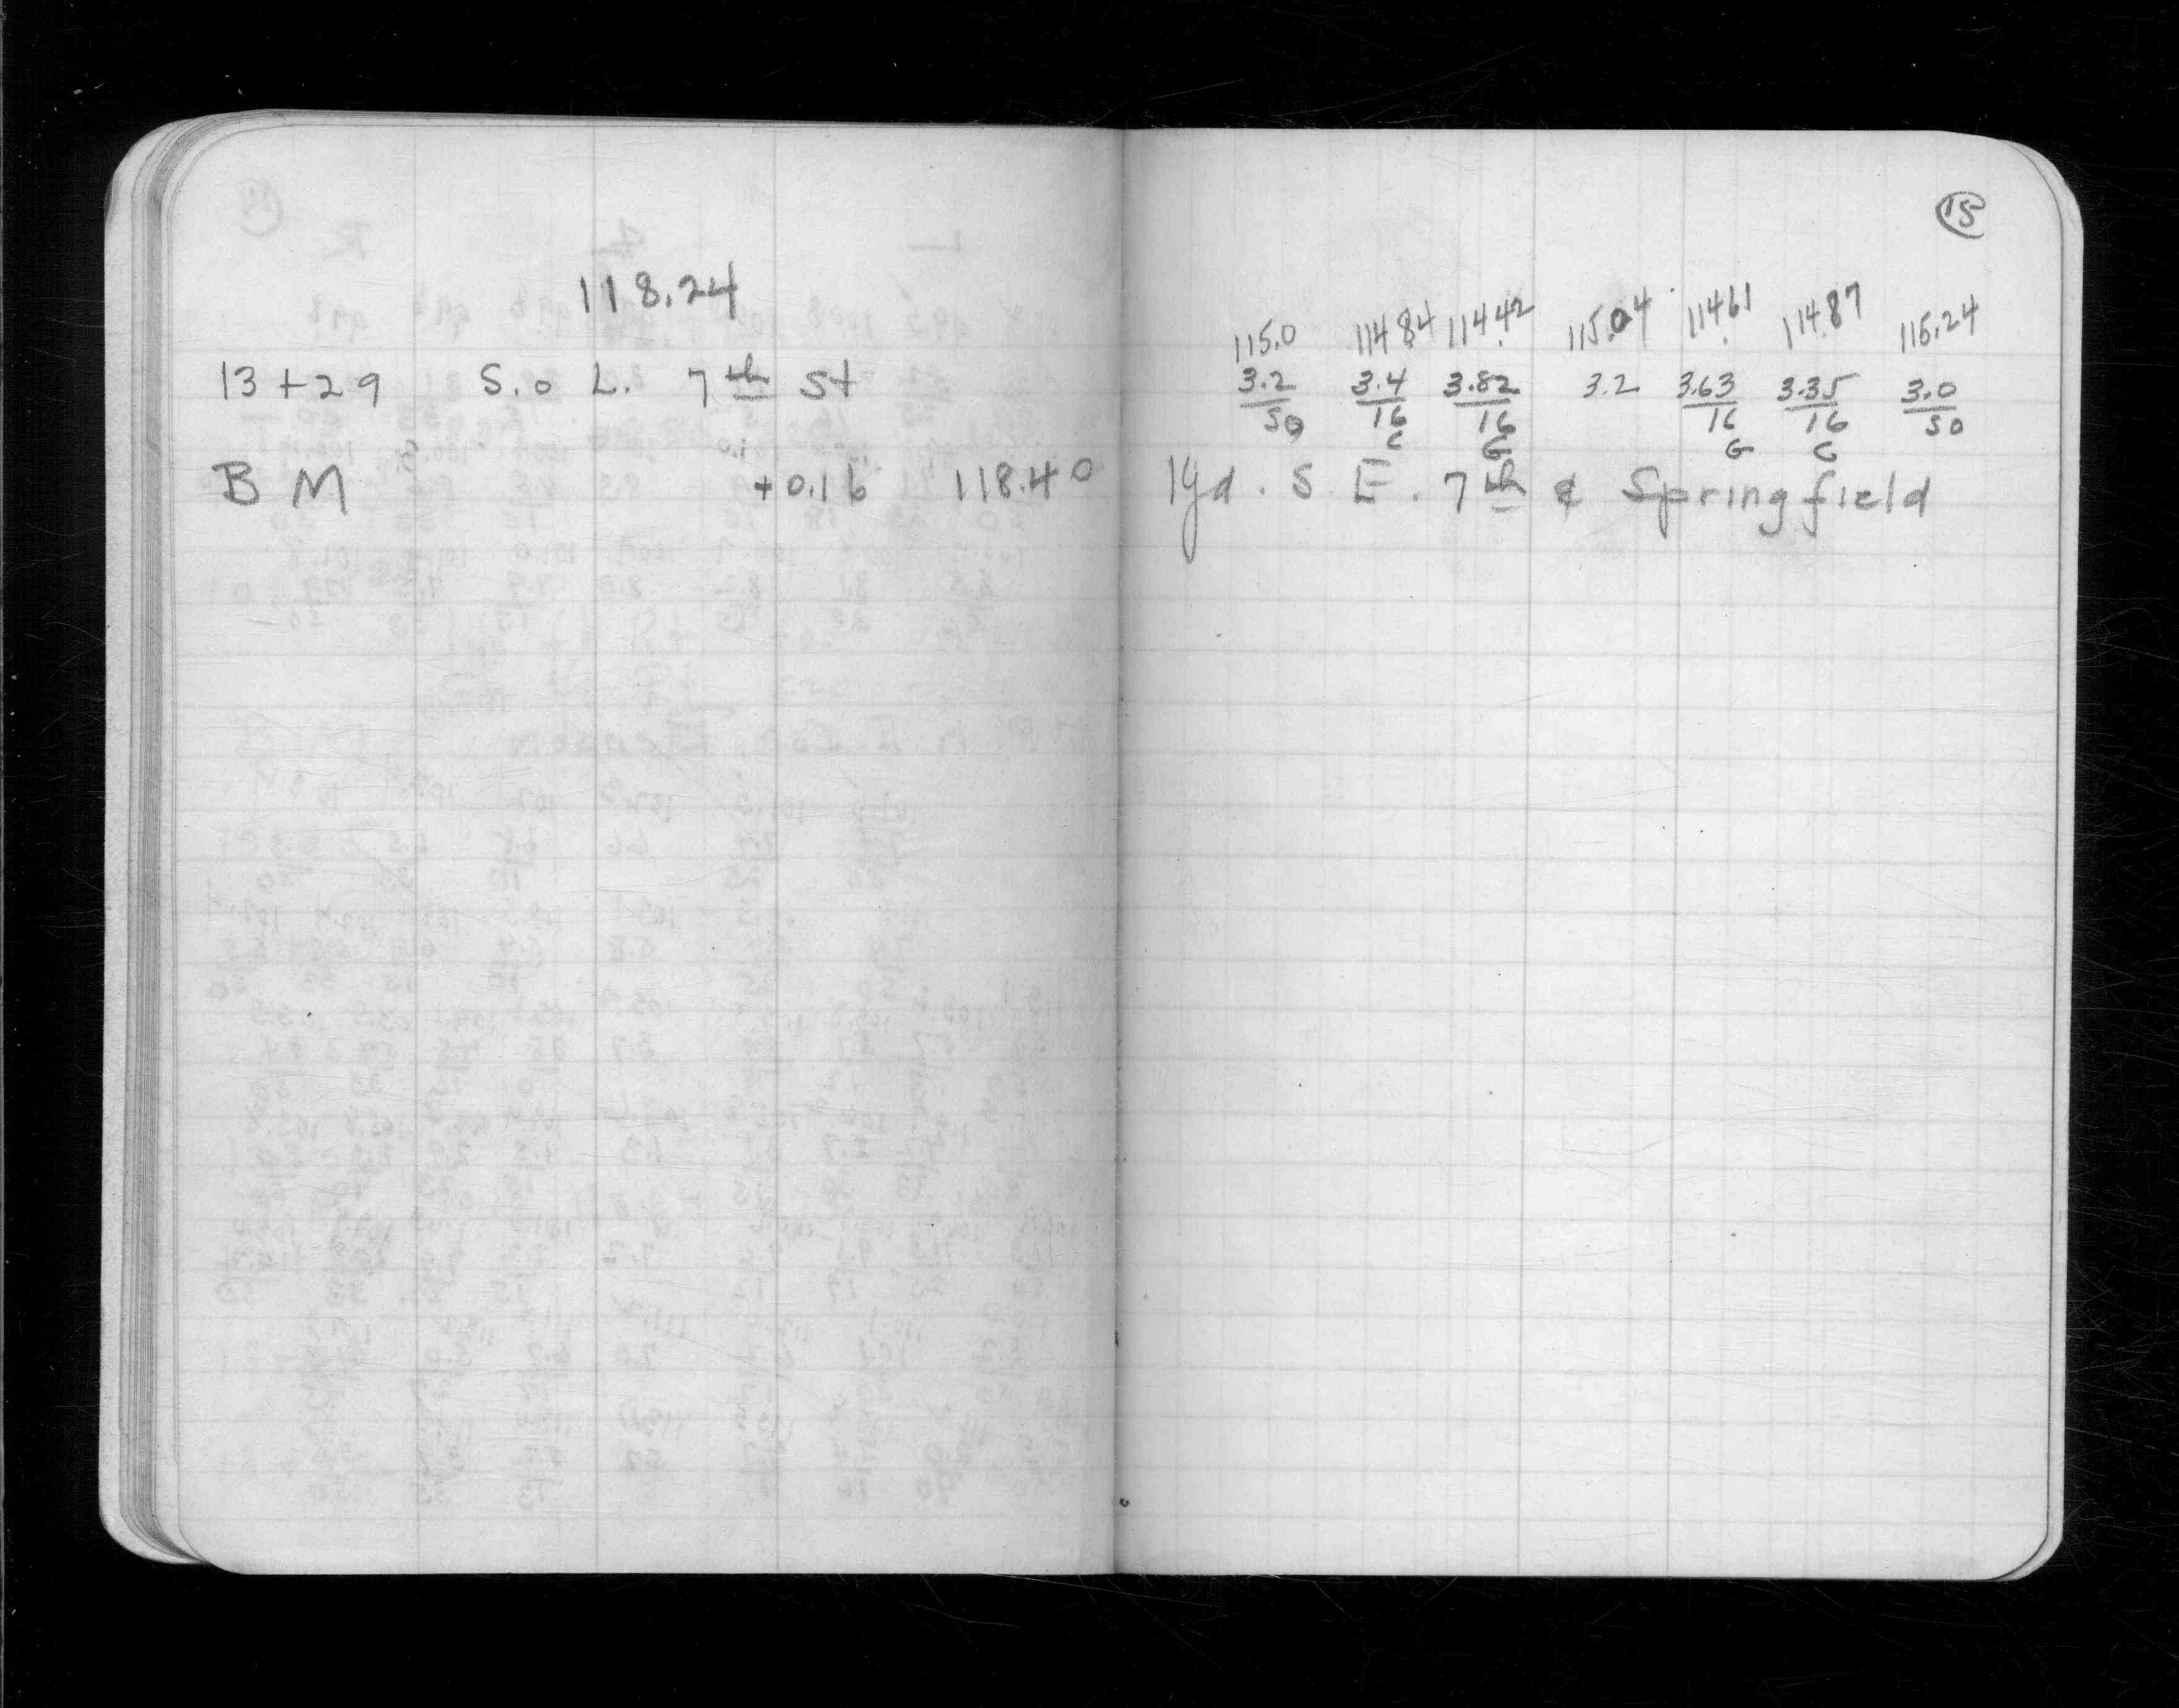 118.24
13+29 S.o L. 7th St
B M +0.16 118.40
15
115.0 114.84 114.42 115.04 114.61 114.87 115.24
3.2 3.4 3.82 3.2 3.63 3.35 3.0
50 16 16 16 16 50
C G G C
Hyd. S. E. 7th & Springfield